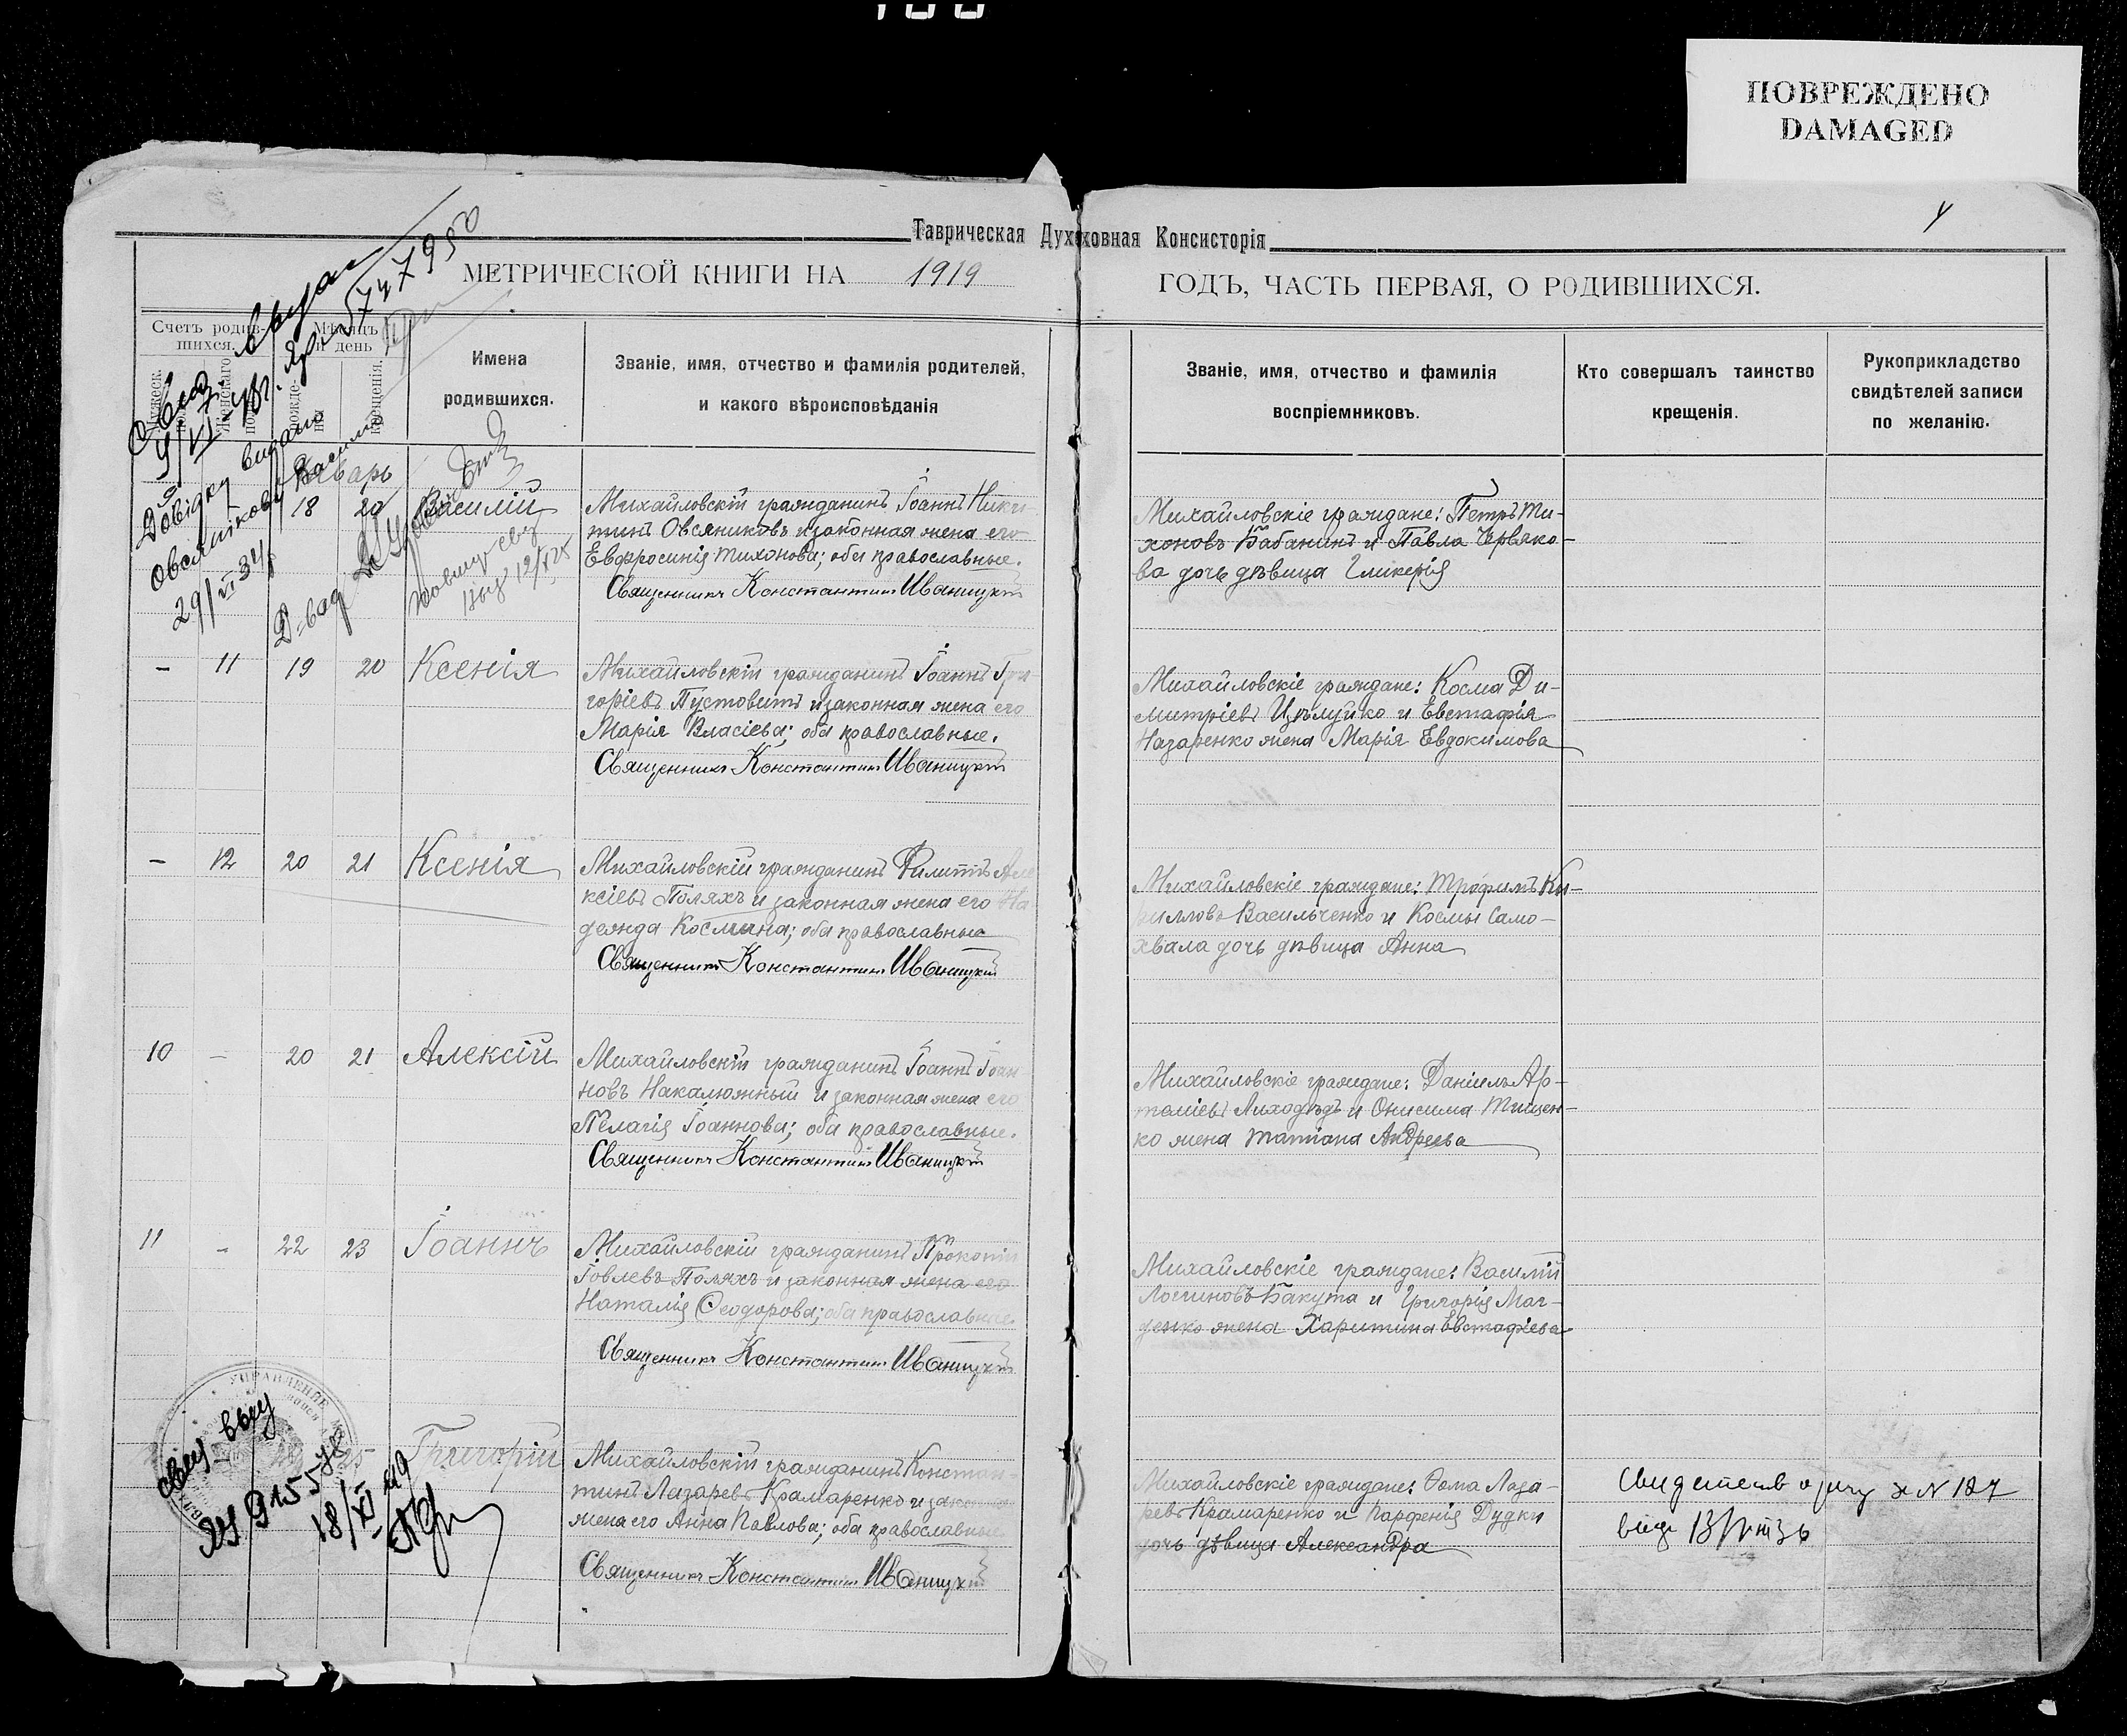 ПОВРЕЖДЕНО
DAMAGED
Таврическая Духовная Консисторія
МЕТРИЧЕСКОЙ КНИГИ НА 1919
ГОДЪ, ЧАСТЬ ПЕРВАЯ, О РОДИВШИХСЯ.
Счетъ родив-
шихся.
Мѣсяцъ
и день
Женскаго
крещенія.
Имена
родившихся.
Званіе, имя, отчество и фамилія родителей,
и какого вѣроисповѣданія
Званіе, имя, отчество и фамилія
воспріемниковъ.
Кто совершалъ таинство
крещенія.
Рукоприкладство
свидѣтелей записи
по желанію.
Январь
9 18 20 Василій
Михайловскій гражданинъ Іоаннъ Ники-
тинъ Овсяниковъ и законная жена его
Евфросинія Тихонова; оба православные.
Священникъ Константинъ Иваницкій
Михайловскіе граждане: Петръ Ти-
хоновъ Бабанинъ и Павла Червяко-
ва дочь дѣвица Гликерія
Довідку видано
Овсянікову Василю
29/VI 34
– 11 19 20 Ксенія
Михайловскій гражданинъ Іоаннъ Гри-
горіевъ Пустовитъ и законная жена его
Марія Власіева; оба православные.
Священникъ Константинъ Иваницкій
Михайловскіе граждане: Косма Ди-
митріевъ Цѣлуйко и Евстафія
Назаренко жена Марія Евдокимова
– 12 20 21 Ксенія
Михайловскій гражданинъ Филиппъ Але-
ксіевъ Поляхъ и законная жена его На-
дежда Космина; оба православные
Священникъ Константинъ Иваницкій
Михайловскіе граждане: Трофимъ Ки-
рилловъ Васильченко и Космы Само-
хвала дочь дѣвица Анна
10 – 20 21 Алексій
Михайловскій гражданинъ Іоаннъ Іоан-
новъ Накалюжный и законная жена его
Пелагія Іоаннова; оба православные.
Священникъ Константинъ Иваницкій
Михайловскіе граждане: Даніилъ Ар-
теміевъ Лиходѣдъ и Онисима Тищен-
ко жена Татіана Андреева
11 – 22 23 Іоаннъ
Михайловскій гражданинъ Прокопій
Іовлевъ Поляхъ и законная жена его
Наталія Ѳеодорова; оба православные.
Священникъ Константинъ Иваницкій
Михайловскіе граждане: Василій
Логиновъ Бакута и Григорія Маг-
денко жена Харитина Евстафіева
Григорій
Михайловскій гражданинъ Констан-
тинъ Лазаревъ Крамаренко и законная
жена его Анна Павлова; оба православные
Священникъ Константинъ Иваницкій
Михайловскіе граждане: Ѳома Лаза-
ревъ Крамаренко и Парфенія Дудки
дочь дѣвица Александра
УПРАВЛЕНИЕ